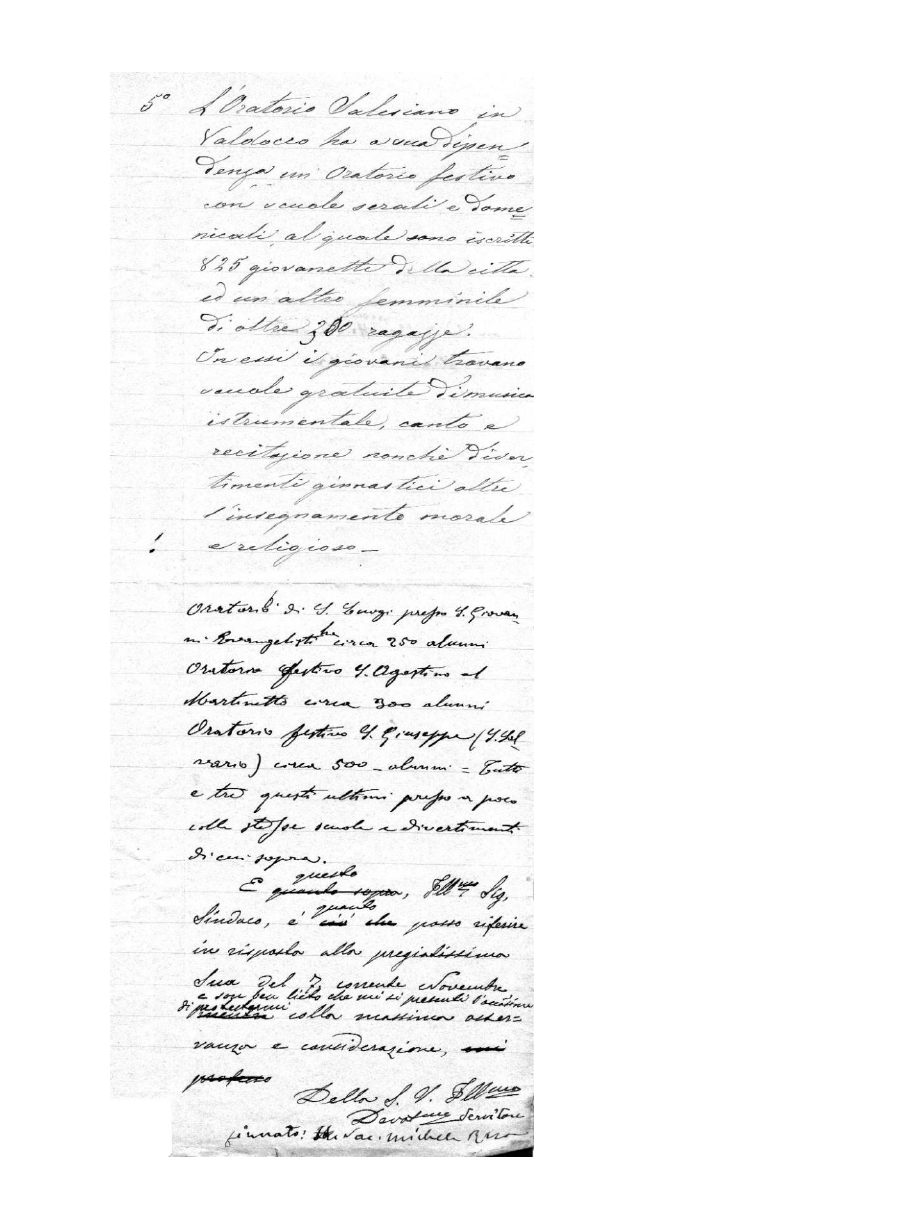 5º L'Oratorio Salesiano in
Valdocco ha a sua dipen=
denza un Oratorio festivo
con scuole serali e dome=
nicali, al quale sono iscritti
825 giovanetti della città
ed un altro femminile
di oltre 300 ragazze.
In essi i giovani trovano
scuole gratuite di musica
istrumentale, canto e
recitazione nonchè diver=
timenti ginnastici oltre
l'insegnamento morale
! e religioso —
Oratorio di S. Luigi presso S. Giovan=
ni Evangelista circa 250 alunni
Oratorio festivo S. Agostino al
Martinetto circa 300 alunni
Oratorio festivo S. Giuseppe (S. Sal=
vario) circa 500 - alunni = Tutti
e tre questi ultimi presso a poco
colle stesse scuole e divertimenti
di cui sopra.
questo
E quanto sopra, Ill.mo Sig.
quanto
Sindaco, è ciò che posso riferire
in risposta alla pregiatissima
Sua del 7 corrente Novembre
e son ben lieto che mi si presenti l'occasione
di protestarmi
colla massima osser=
vanza e considerazione, mi
professo
Della S. V. Ill.ma
Dev.mo Servitore
firmato: Sac. Michele Rua